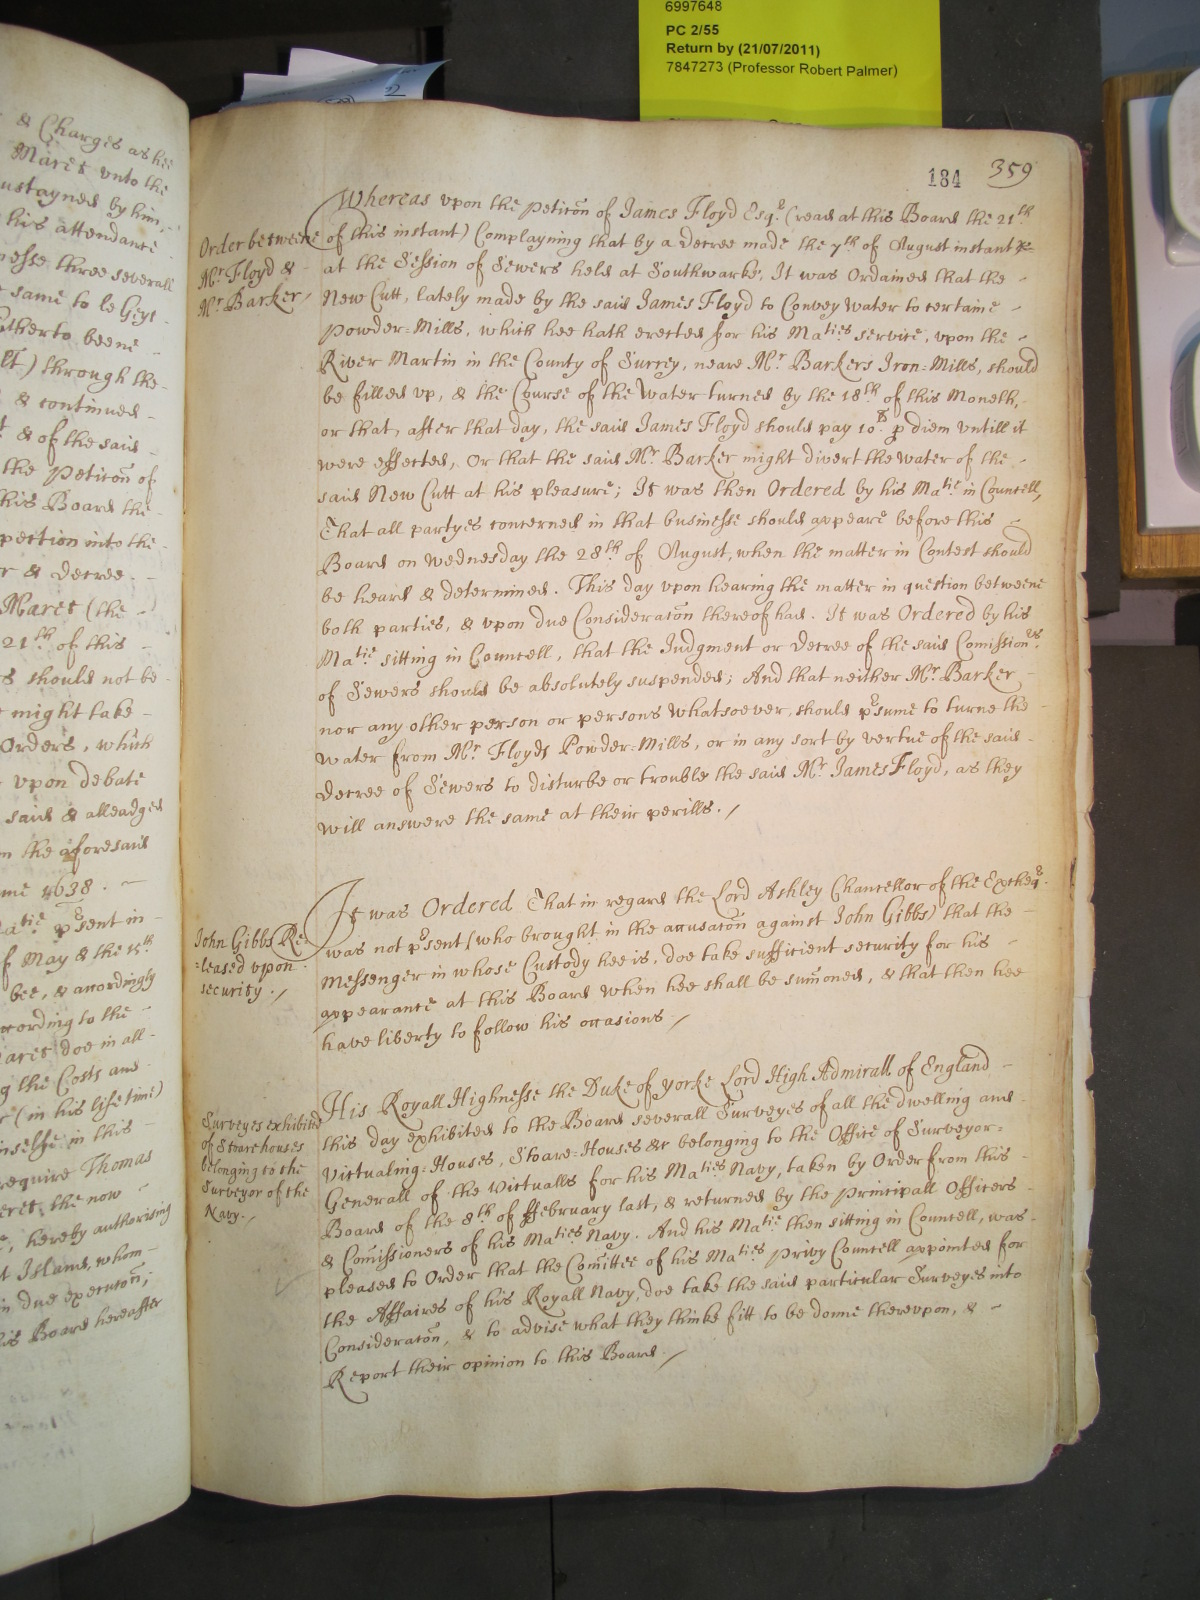 6997648
PC 2/55
Return by (21/07/2011)
7847273 (Professor Robert Palmer)
184 359
& Charges as hee
Maret vnto the
ustayned by him,
his attendance
nesse three severall
same to le Geyt
itherto beene
lt) through the
& continued
& of the said
the Peticõn of
his Board the
pection into the
r & Decree.
Maret (the
21th of this
s should not be
might take
Orders, which
upon debate
said & alleadged
in the aforesaid
me 1638.
Matie pͬsent in
f May & the 15th
bee, & accordingly
ccording to the
aret doe in all
g the Costs and
r (in his life time)
nselfe in this
require Thomas
eret, the now
hereby authorising
t Island, whom
in due execucõn;
is Board hereafter
Order betweene
Mr Floyd &
Mr Barker /
Whereas vpon the Peticõn of James Floyd Esqr (read at this Board the 21th
of this instant) Complayning that by a Decree made the 7th of August instant
at the Session of Sewers held at Southwarke, It was Ordained that the
New Cutt, lately made by the said James Floyd to Convey Water to certaine
Powder=Mills, which hee hath erected for his Maties service, vpon the
River Martin in the County of Surrey, neare Mr Barkers Iron=Mills, should
be filled vp, & the Course of the Water turned by the 18th of this Moneth,
or that, after that day, the said James Floyd should pay 10s p diem vntill it
were effected, Or that the said Mr Barker might divert the Water of the
said New Cutt at his pleasure; It was then Ordered by his Matie in Councell,
That all partyes concerned in that businesse should appeare before this
Board on Wednesday the 28th of August, when the matter in Contest should
be heard & determined. This day vpon hearing the matter in question betweene
both parties, & vpon due Consideracõn thereof had. It was Ordered by his
Matie sitting in Councell, that the Judgment or Decree of the said Comissionrs
of Sewers should be absolutely suspended; And that neither Mr Barker
nor any other person or persons Whatsoever, should pͬsume to turne the
Water from Mr Floyds Powder=Mills, or in any sort by vertue of the said
Decree of Sewers to disturbe or trouble the said Mr James Floyd, as they
will answere the same at their perills. /
John Gibbs Re=
=leased vpon
security. /
It was Ordered That in regard the Lord Ashley Chancellor of the Excheqr
was not pͬsent (who brought in the accusacõn against John Gibbs) that the
Messenger in whose Custody hee is, doe take sufficient security for his
appearance at this Board when hee shall be sum̃oned, & that then hee
have liberty to follow his occasions /
Surveyes exhibited
of Stoarehouses
belonging to the
Surveyor of the
Navy. /
His Royall Highnesse the Duke of yorke Lord High Admirall of England
this day exhibited to the Board severall Surveyes of all the dwelling and
Victualing=Houses, Stoare=Houses &c belonging to the Office of Surveyor=
Generall of the Victualls for his Maties Navy, taken by Order from this
Board of the 8th of ffebruary last, & returned by the Principall Officers
& Com̃issioners of his Maties Navy. And his Matie then sitting in Councell, was
pleased to Order that the Com̃ittee of his Maties Privy Councell appointed for
the Affaires of his Royall Navy, doe take the said particular Surveyes into
Consideracõn, & to advise what they thinke fitt to be donne therevpon, &
Report their opinion to this Board. /